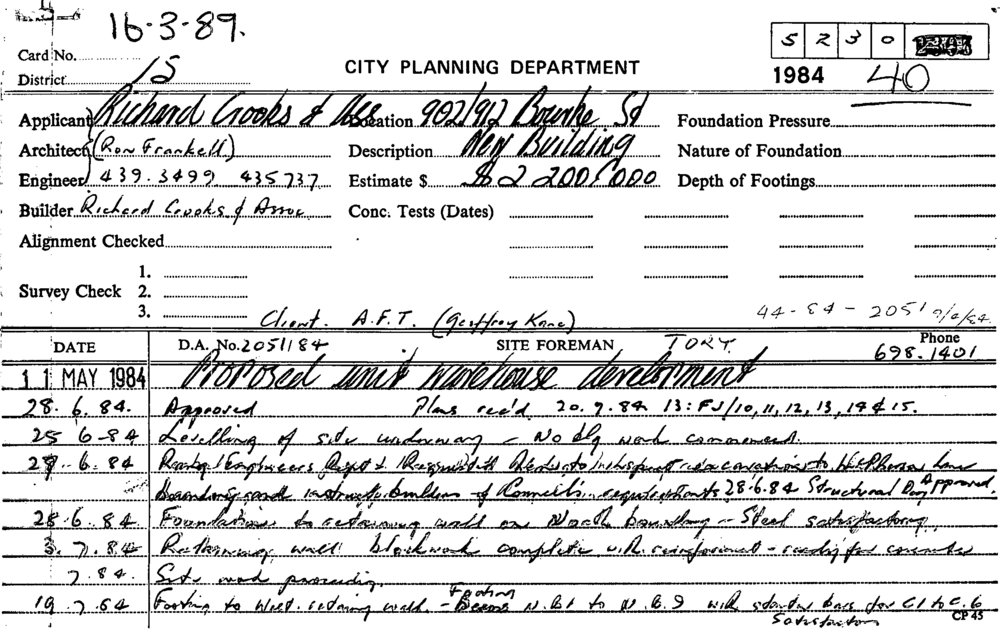 16-3-89.
5 2 3 0
Card No.
District 15
CITY PLANNING DEPARTMENT
1984 40
Applicant Richard Crooks & Ass Location 902/912 Bourke St Foundation Pressure
Architect (Ron Frankell) Description New Building Nature of Foundation
Engineer 439.3499 435737 Estimate $ $2 200,000 Depth of Footings
Builder Richard Crooks & Assoc Conc. Tests (Dates)
Alignment Checked
1.
Survey Check 2.
3.
Client. A.F.T. (Geoffrey Kane) 44-84-2051
DATE D.A. No. 2051/84 SITE FOREMAN TONY. Phone 698.1401
11 MAY 1984 Proposed unit warehouse development
28.6.84. Approved Plans rec'd 20.7.84 13:FJ/10,11,12,13,14 & 15.
25 6-84 Levelling of site underway - No blg work commenced.
6.84 Engineers
Boundary and instruct builders of Council's requirements 28.6.84 Structural Approved.
28.6.84 Foundations to retaining wall on North boundary - Steel satisfactory.
3.7.84 Retaining wall blockwork complete with reinforcement - ready for concrete
7.84. Site work proceeding.
19.7.84 Footing to West retaining wall. - Footing Beams N.B1 to N.B.9 with starter bars for C1 to C.6
satisfactory
CP 45